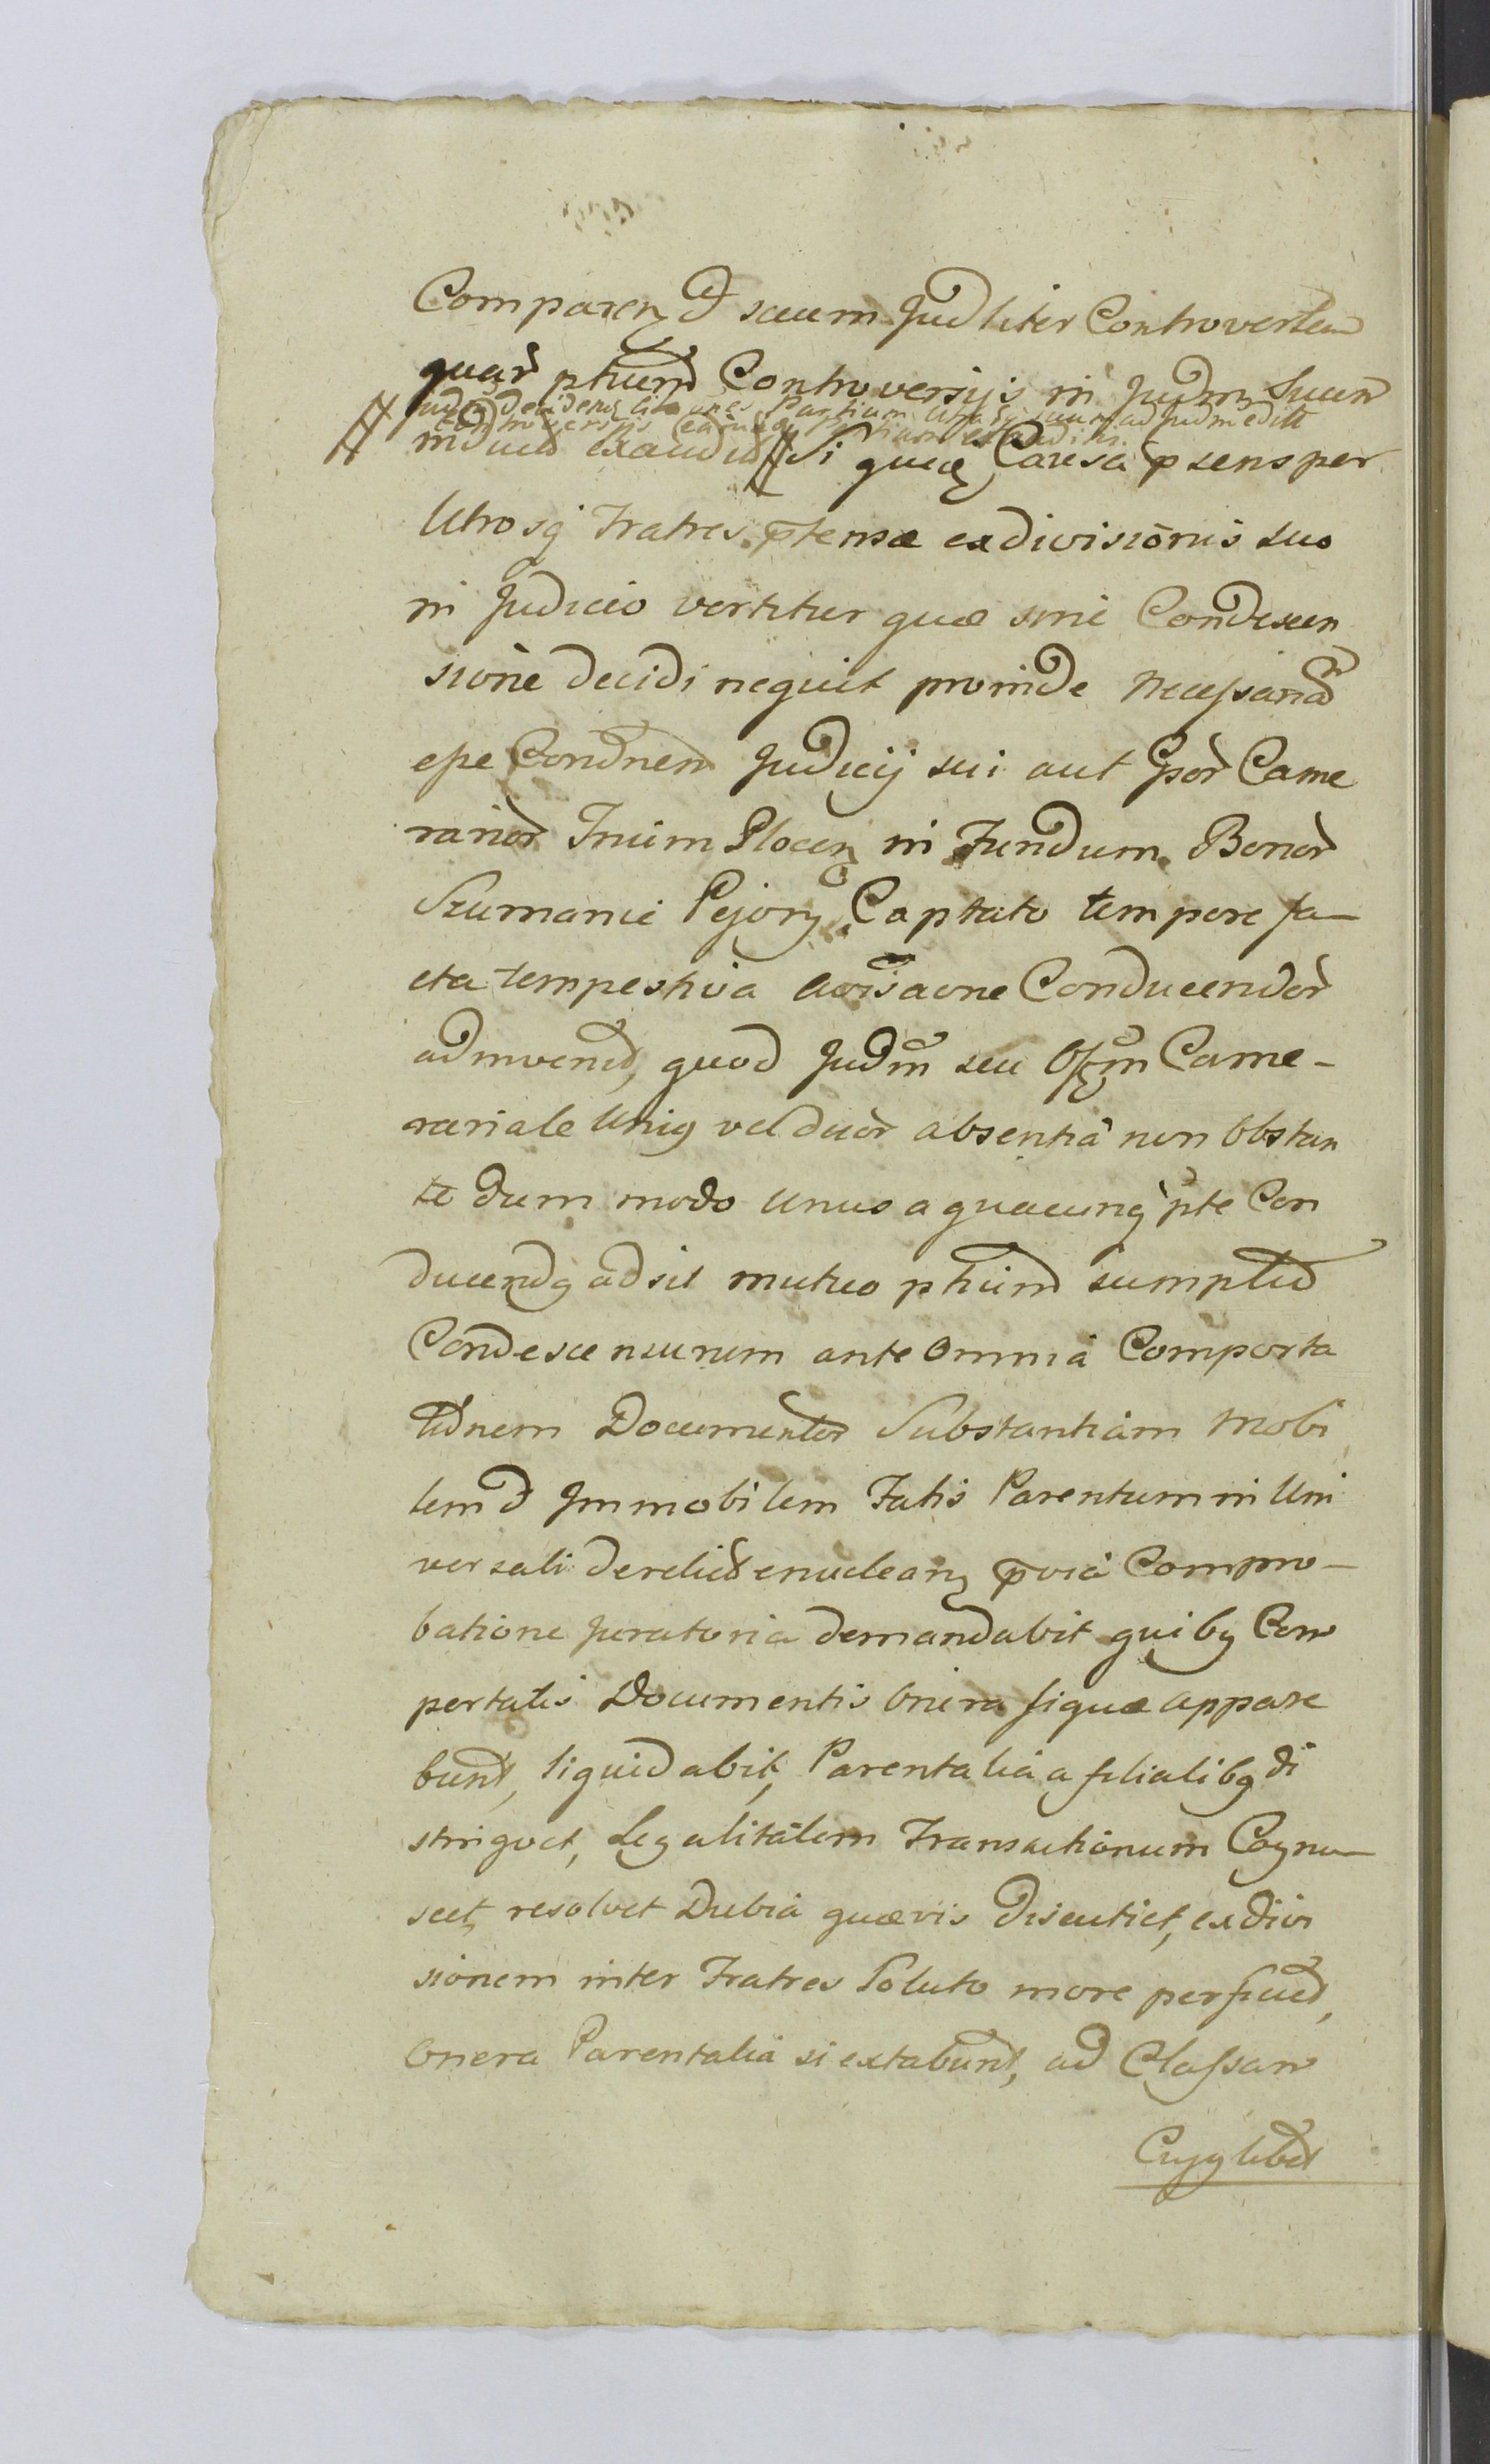 Comparen et secum Judliter Controverten
quar ptium Controversijs in Judm Suum
Judm decidens Partium suum ad Judm
Controversijs earundem partium
induct exaudit # Si quidem Causa psens per
Utrosq Fratres ptensae exdivisionis suo
in Judicio vertitur quae sine Condescen
sione decidi nequit proinde necessariam
esse Condnem Judicij sui aut Came
rarior Tnium Plocen in Fundum Bonor
Szumanie Pejory Captato tempore fa-
cta tempestiva avisaone Conducendor
adinvenit, quod Judm seu Offm Came-
rariale Unius vel duor absentia non Obstan
te dum modo unus a quacunq pte Con
ducendus adsit mutuo ptium sumptu
Condescensurum ante omnia Comporta
tionem Documentor Substantiam Mobi
lem et Immobilem Fatis Parentum in Uni
versali derelict enuclean pvia Compro-
batione Juratoria demandabit quibus Com
portatis Documentis Onera siquae appare
bunt, liquidabit, Parentalia a filialibus di
stinguet, Legalitatem Transactionum Cogno-
scet, resolvet Dubia quaevis discutiet, exdivi
sionem inter Fratres Soluto more perficiet,
Onera Parentalia si extabunt, ad Classam
Cujuslibet